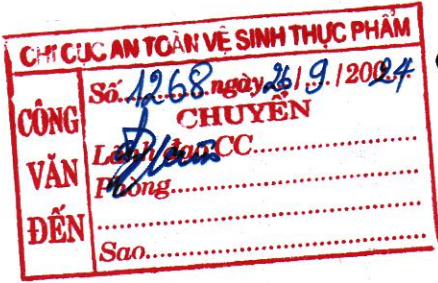 CHI CỤC AN TOÀN VỆ SINH THỰC PHẨM
CÔNG VĂN ĐẾN
Số...1268...ngày..26/9./2024
CHUYỂN
Lãnh đạo CC
Phòng
Sao